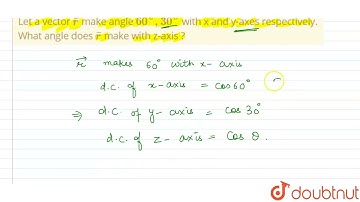 Let a vector r⃗ make angle 60°, 30° with x and y-axes respectively.
What angle does r⃗ make with z-axis ?
r⃗ makes 60° with x- axis
d.c. of x-axis = cos60°
⇒ d.c. of y- axis = cos 30°
d.c. of z - axis = Cos θ.
doubtnut